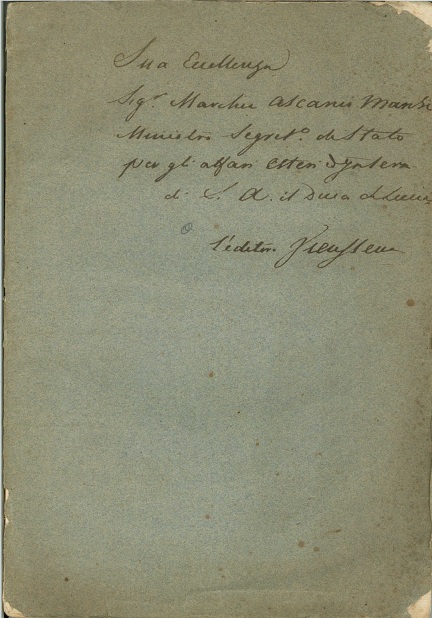 Sua Eccellenza
Sigr. Marchese Ascanio Mansi
Ministro Segreto. di Stato
per gli affari Esteri d'Interni
di S. A. il Duca di Lucca
l'editore Vieusseux